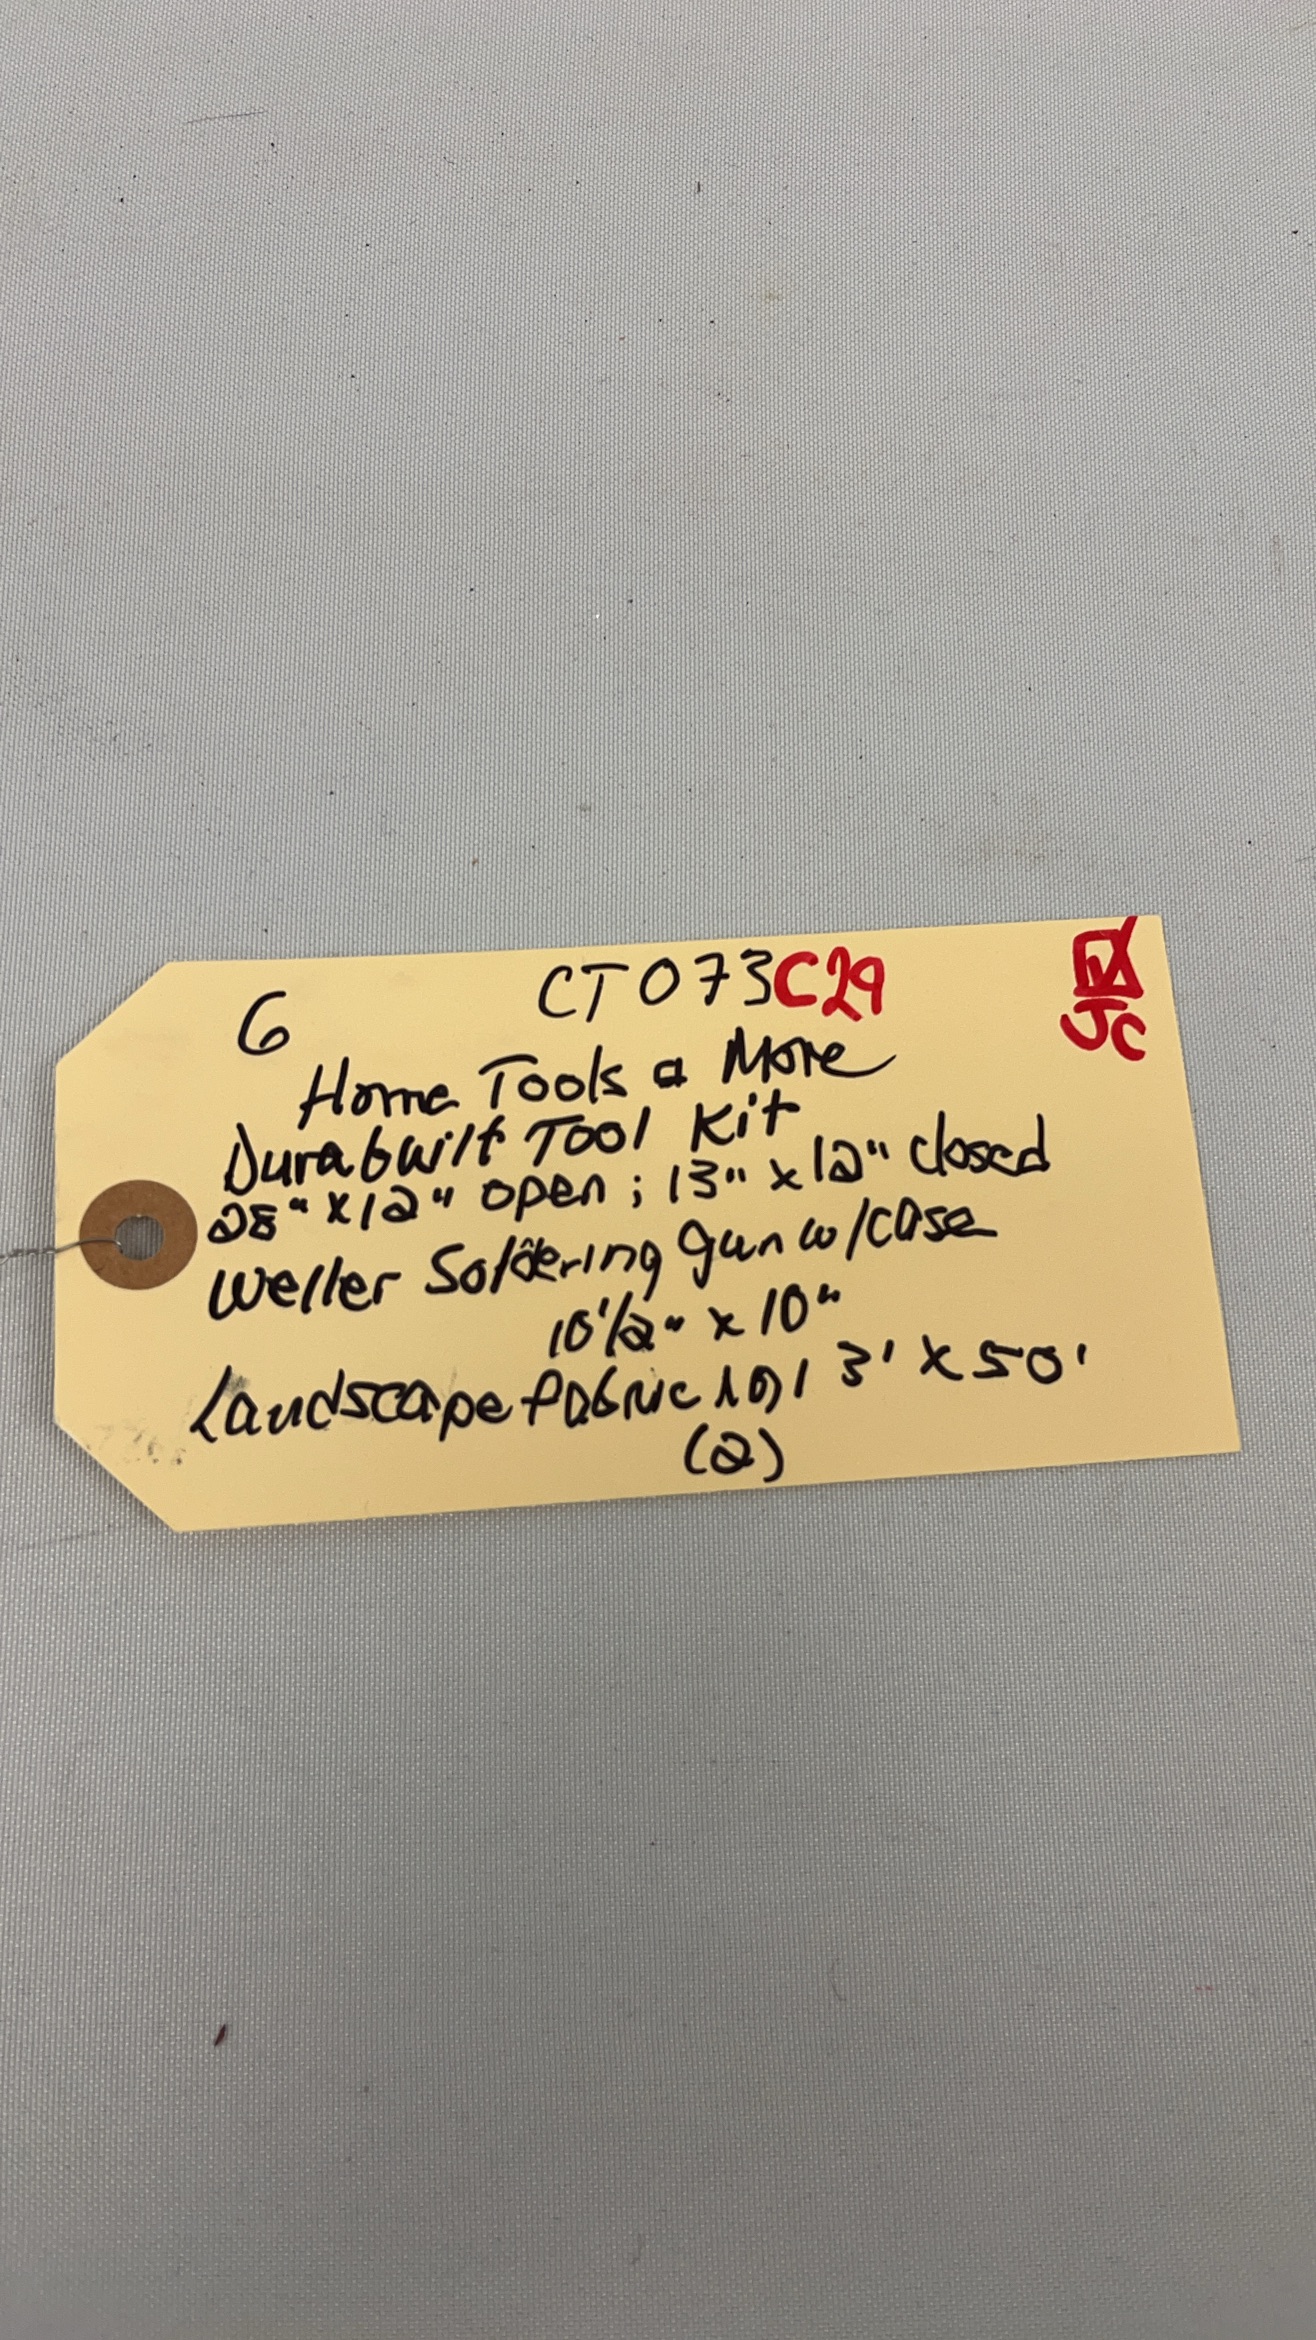 6 CT073C29
JC
Home Tools & More
Durabuilt Tool Kit
28" x 12" open; 13" x 12" closed
Weller Soldering gun w/case
10 1/2" x 10"
Landscape fabric 3' x 50'
(2)